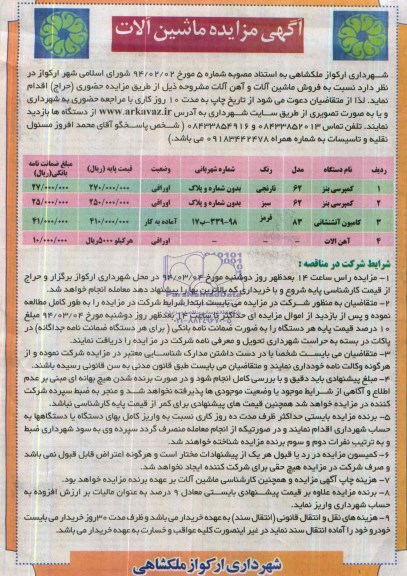 آگهی مزایده ماشین آلات
شهرداری ارکواز ملکشاهی به استناد مصوبه شماره ۵ مورخ ۹۴/۰۲/۰۲ شورای اسلامی شهر ارکواز در
نظر دارد نسبت به فروش ماشین آلات و آهن آلات مشروحه ذیل از طریق مزایده حضوری (حراج) اقدام
نماید. لذا از متقاضیان دعوت می شود از تاریخ چاپ به مدت ۱۰ روز کاری با مراجعه حضوری به شهرداری
و یا به صورت تصویری از طریق سایت شهرداری به آدرس www.arkavaz.ir از دستگاه ها بازدید
نمایند. تلفن تماس ۰۸۴۳۳۸۵۲۰۱۳ و ۰۸۴۳۳۸۵۴۹۱۶ (شخص پاسخگو آقای محمد افروز مسئول
نقلیه و تاسیسات به شماره همراه ۰۹۱۸۳۴۴۲۴۷۸ می باشد.)
ردیف نام دستگاه مدل رنگ شماره شهربانی وضعیت قیمت پایه (ریال) مبلغ ضمانت نامه بانکی(ریال)
۱ کمپرسی بنز ۶۲ نارنجی بدون شماره و پلاک اوراقی ۲۷۰/۰۰۰/۰۰۰ ۲۷/۰۰۰/۰۰۰
۲ کمپرسی بنز ۶۲ سبز بدون شماره و پلاک اوراقی ۲۵۰/۰۰۰/۰۰۰ ۲۵/۰۰۰/۰۰۰
۳ کامیون آتشنشانی ۸۳ قرمز ۹۸-۳۳۹ب۱۷ آماده به کار ۴۱۰/۰۰۰/۰۰۰ ۴۱/۰۰۰/۰۰۰
۴ آهن الات – – – اوراقی هرکیلو ۵۰۰۰ریال ۱۰/۰۰۰/۰۰۰
شرایط شرکت در مناقصه :
۱- مزایده راس ساعت ۱۴ بعدظهر روز دوشنبه مورخ ۹۴/۰۳/۰۴ در محل شهرداری ارکواز برگزار و حراج
از قیمت کارشناسی پایه شروع و با خریداری که بالاترین بها را پیشنهاد دهد معامله انجام خواهد شد.
۲- متقاضیان به منظور شرکت در مزایده می بایست ابتدا شرایط شرکت در مزایده را به طور کامل مطالعه
نموده و پس از بازدید از اموال مزایده ای حداکثر تا ساعت ۱۴ بعدظهر روز دوشنبه مورخ ۹۴/۰۳/۰۴ مبلغ
۱۰ درصد قیمت پایه هر دستگاه را به صورت ضمانت نامه بانکی (برای هر دستگاه ضمانت نامه جداگانه) در
پاکات در بسته به حراست شهرداری تحویل و معرفی نامه شرکت در مزایده را دریافت نمایند.
۳- متقاضیان می بایست شخصا با در دست داشتن مدارک شناسایی معتبر در مزایده شرکت نموده و از
هرگونه وکالت نامه خودداری نمایند و متقاضیان می بایست طبق قانون مدنی به سن قانونی رسیده باشند.
۴- مبلغ پیشنهادی باید دقیق و با بررسی کامل انجام شود و در صورت برنده شدن هیچ بهانه ای مبنی بر عدم
اطلاع و آگاهی از شرایط موجود یا وضعیت موجودی ها پذیرفته نخواهد شد و منجر به ضبط سپرده شرکت
کننده در مزایده خواهد شد همچنین قیمت های پیشنهادی برای کمتر از قیمت پایه کارشناسی نباشد.
۵- برنده مزایده بایستی حداکثر ظرف مدت ده روز کاری نسبت به واریز کامل بهای دستگاه یا دستگاهها به
حساب شهرداری اقدام نمایند و در صورتیکه از انجام معامله منصرف گردد سپرده وی به سود شهرداری ضبط
و به ترتیب نفرات دوم و سوم برنده مزایده شناخته خواهند شد.
۶- کمیسیون مزایده در رد یا قبول هر یک از پیشنهادات مختار است و هرگونه اعتراض قابل قبول نمی باشد
و صرف شرکت در مزایده هیچ حقی برای شرکت کننده ایجاد نخواهد شد.
۷- هزینه چاپ آگهی مزایده و همچنین کارشناسی ماشین آلات بر عهده برنده مزایده خواهد بود.
۸- برنده مزایده علاوه بر قیمت پیشنهادی بایستی معادل ۹ درصد به عنوان مالیات بر ارزش افزوده به
حساب شهرداری واریز نماید.
۹- هزینه های نقل و انتقال قانونی (انتقال سند) به عهده خریدار می باشد و ظرف مدت ۳۰روز خریدار می بایست
خودرو خود را آماده انتقال سند نماید در غیر اینصورت کلیه عواقب و خسارت به عهده خریدار می باشد.
شهرداری ارکواز ملکشاهی